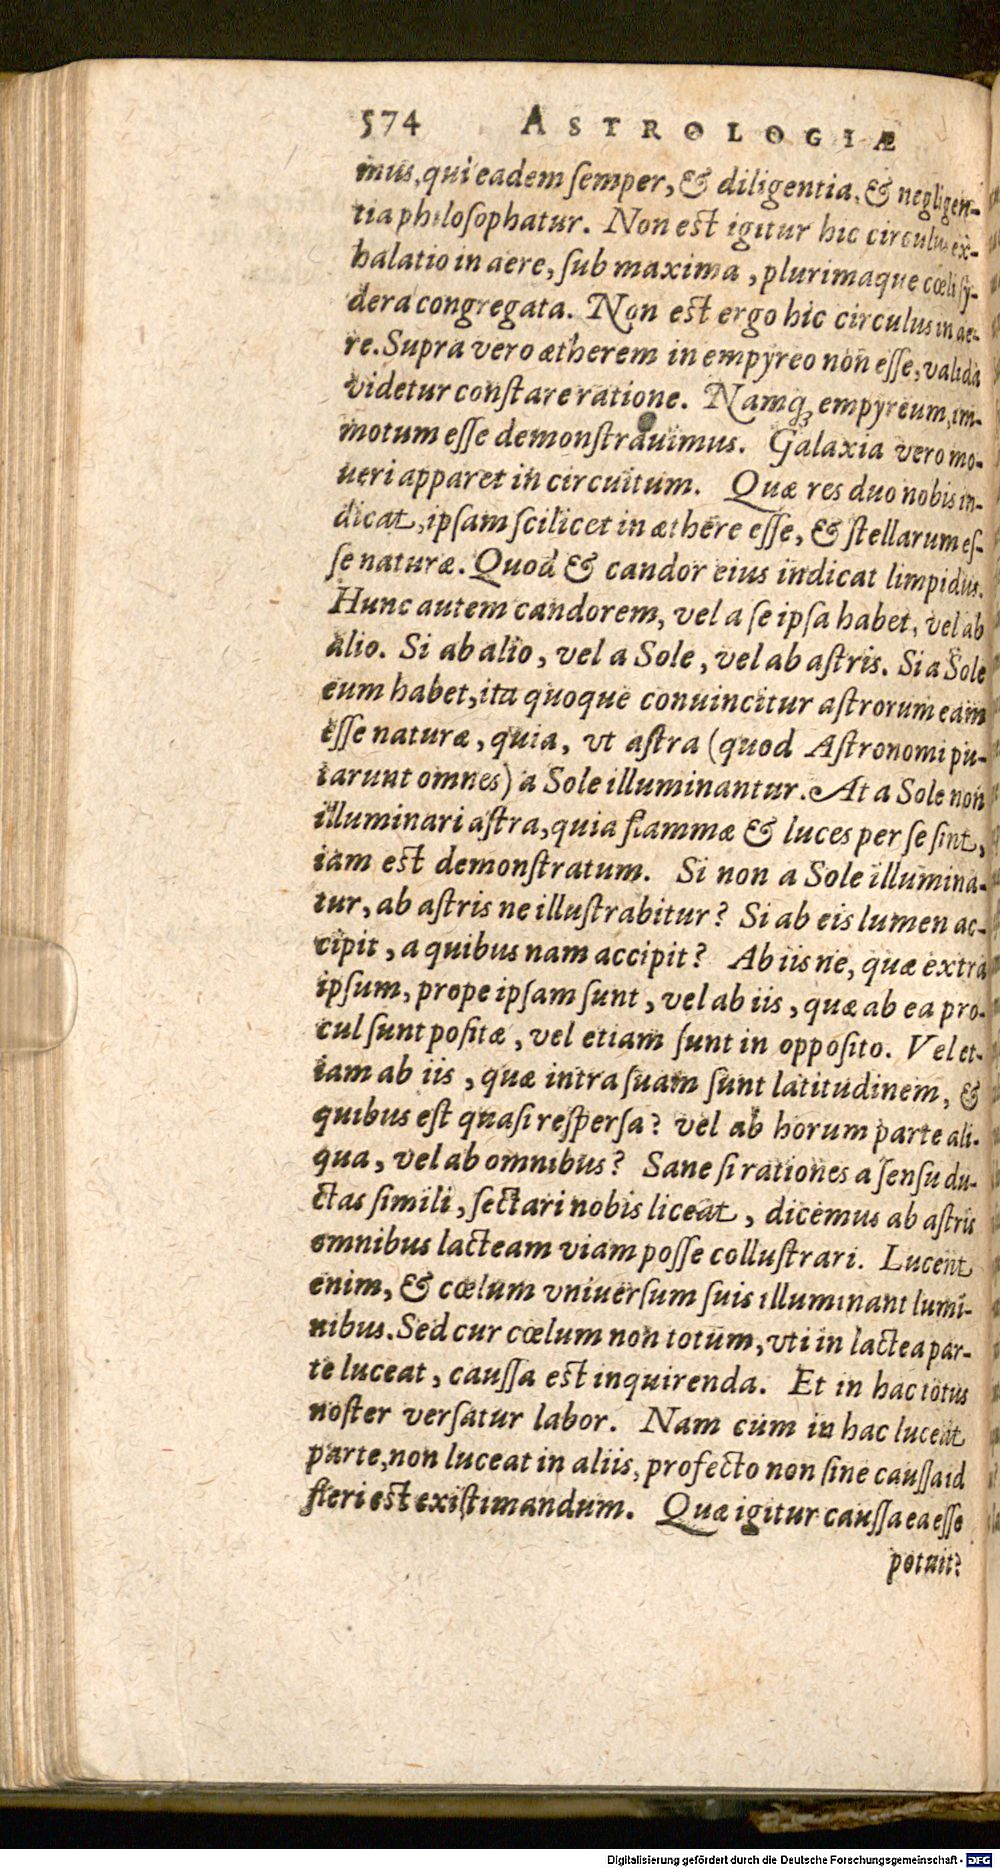 574 ASTROLOGIÆ
mus, qui eadem ſemper, & diligentia, & negligen-
tia philoſophatur. Non est igitur hic circulus ex-
halatio in aere, ſub maxima, plurimaque cœli ſy-
dera congregata. Non est ergo hic circulus in ae-
re. Supra vero ætherem in empyreo non eſſe, valida
videtur conſtare ratione. Namq; empyreum, im-
motum eſſe demonſtrauimus. Galaxia vero mo-
ueri apparet in circuitum. Quæ res duo nobis in-
dicat, ipſam ſcilicet in æthere eſſe, & ſtellarum eſ-
ſe naturæ. Quod & candor eius indicat limpidus.
Hunc autem candorem, vel a ſe ipſa habet, vel ab
alio. Si ab alio, vel a Sole, vel ab aſtris. Si a Sole
eum habet, ita quoque conuincitur aſtrorum eam
eſſe naturæ, quia, vt aſtra (quod Aſtronomi pu-
tarunt omnes) a Sole illuminantur. At a Sole non
illuminari aſtra, quia flammæ & luces per ſe ſint,
iam est demonſtratum. Si non a Sole illumina-
tur, ab aſtris ne illuſtrabitur? Si ab eis lumen ac-
cipit, a quibus nam accipit? Ab iis ne, quæ extra
ipſum, prope ipſam ſunt, vel ab iis, quæ ab ea pro-
cul ſunt poſitæ, vel etiam ſunt in oppoſito. Vel et-
iam ab iis, quæ intra ſuam ſunt latitudinem, &
quibus eſt quaſi reſperſa? vel ab horum parte ali-
qua, vel ab omnibus? Sane ſi rationes a ſenſu du-
ctas ſimili, ſectari nobis liceat, dicemus ab aſtris
omnibus lacteam viam poſſe colluſtrari. Lucent
enim, & cœlum vniuerſum ſuis illuminant lumi-
nibus. Sed cur cœlum non totum, vti in lactea par-
te luceat, cauſſa est inquirenda. Et in hac totus
noſter verſatur labor. Nam cum in hac luceat
parte, non luceat in aliis, profecto non ſine cauſſa id
fieri est exiſtimandum. Quæ igitur cauſſa ea eſſe
potuit?
Digitalisierung gefördert durch die Deutsche Forschungsgemeinschaft - DFG